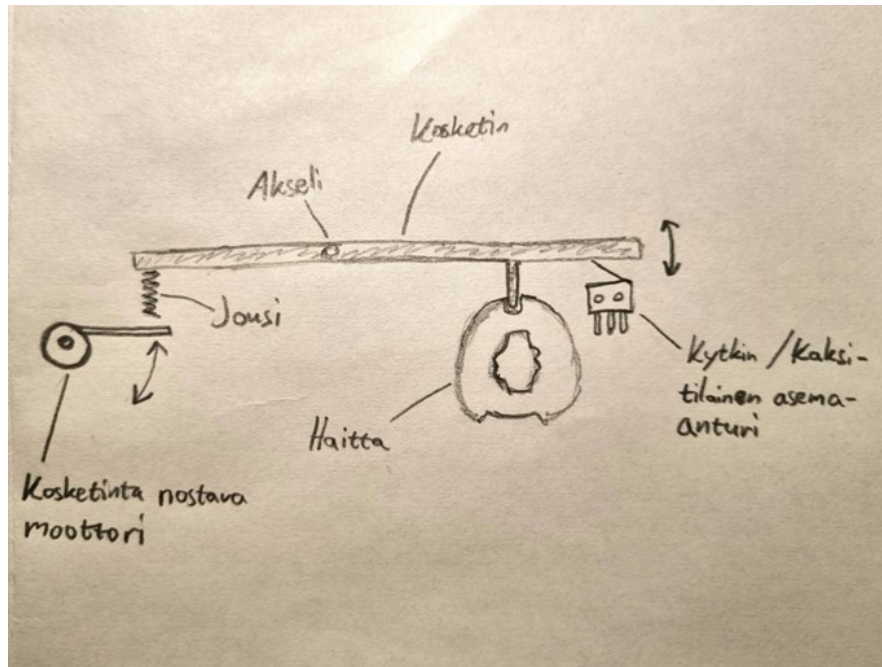 Kosketin
Akseli
Jousi
Kytkin / Kaksi-
tilainen asema-
anturi
Haitta
Kosketinta nostava
moottori